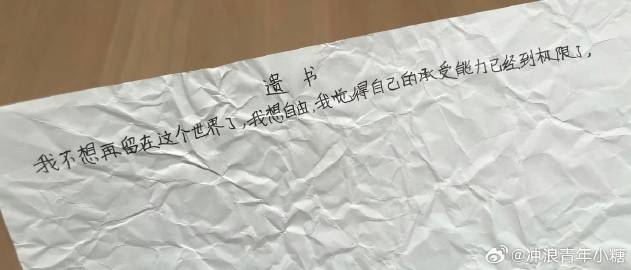 遗书
我不想再留在这个世界了,我想自由,我觉得自己的承受能力已经到极限了,
@冲浪青年小糖